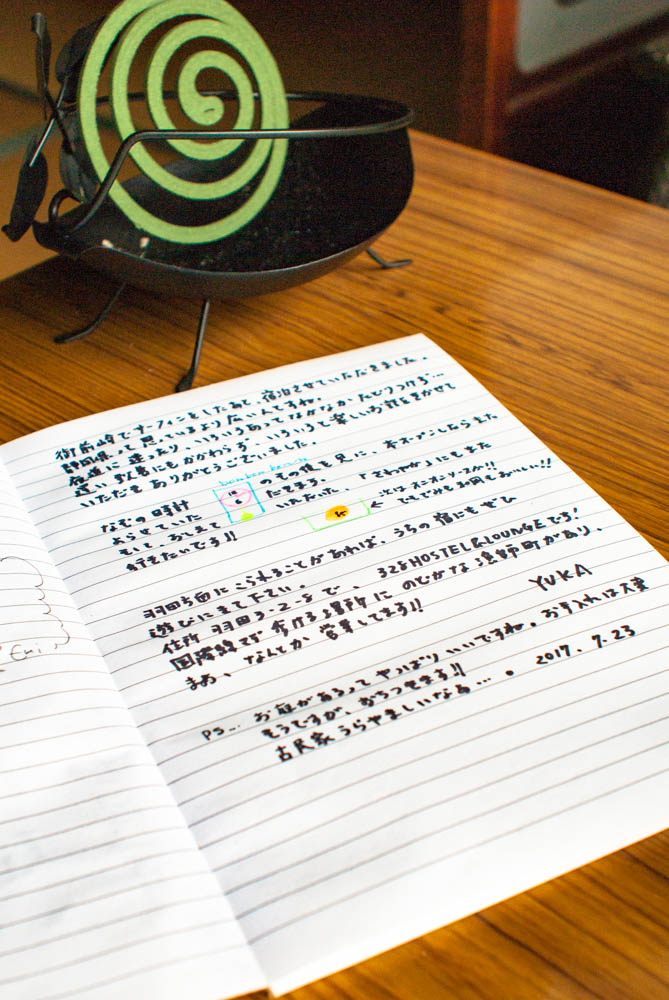 御前崎でサーフィンをしたあと、宿泊させていただきました。
静岡県って思っているより広いんですね。
名道に迷ったり、いろいろあってなかなかたどりつけず…
遅い到着にもかかわらず、いろいろと楽しいお話をきかせて
いただきありがとうございました。
なぞの時計 のその後を見に、本オープンしたらまた
よらせていた だきます。
そして、おしえて いただいた、「さわやか」にもまた
行きたいです!!
←次はオニオンソースか!!
でもでも2回ともおいしい!!
羽田方面にこられることがあれば、うちの宿にもぜひ
遊びに来て下さい。
住所 羽田5-2-8で、328HOSTEL&LOUNGEです!
国際線まで歩ける場所にのどかな漁師町があり、
まあ、なんとか営業してます!!
YUKA
PS... お庭があるってやっぱりいいですね。お手入れは大変
そうですが、がちってきます!!
古民家うらやましいなる…。 2017.7.23
Eri